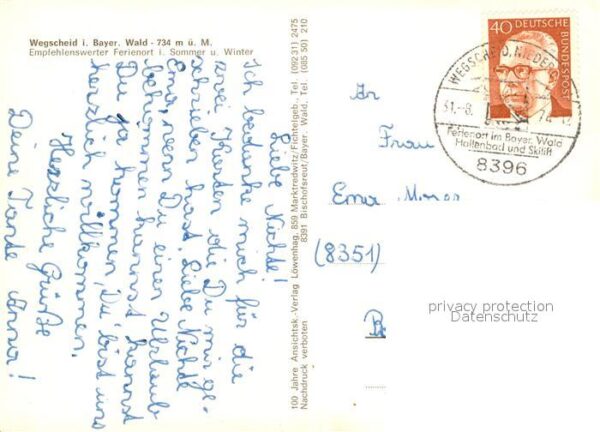 Wegscheid i. Bayer. Wald - 734 m ü. M.
Empfehlenswerter Ferienort i. Sommer u. Winter
Liebe Nichte!
Ich bedanke mich für die
zwei Karten die Du mir ge-
schrieben hast. Liebe Nichte
Ema, wenn Du einen Urlaub
bekommen kannst kannst
Du ja kommen, Du bist uns
herzlich willkommen.
Herzliche Grüße
Deine Tante Anna!
100 Jahre Ansichtsk.-Verlag Löwenhag, 859 Marktredwitz/Fichtelgeb., Tel. (092 31) 2475
Nachdruck verboten 8391 Bischofsreut/Bayer. Wald, Tel. (085 50) 210
40 DEUTSCHE
BUNDESPOST
WEGSCHEID, NIEDERB
31.-8. 74
Ferienort im Bayer. Wald
Hallenbad und Skilift
8396
Frau
Ema
(8351)
privacy protection
Datenschutz